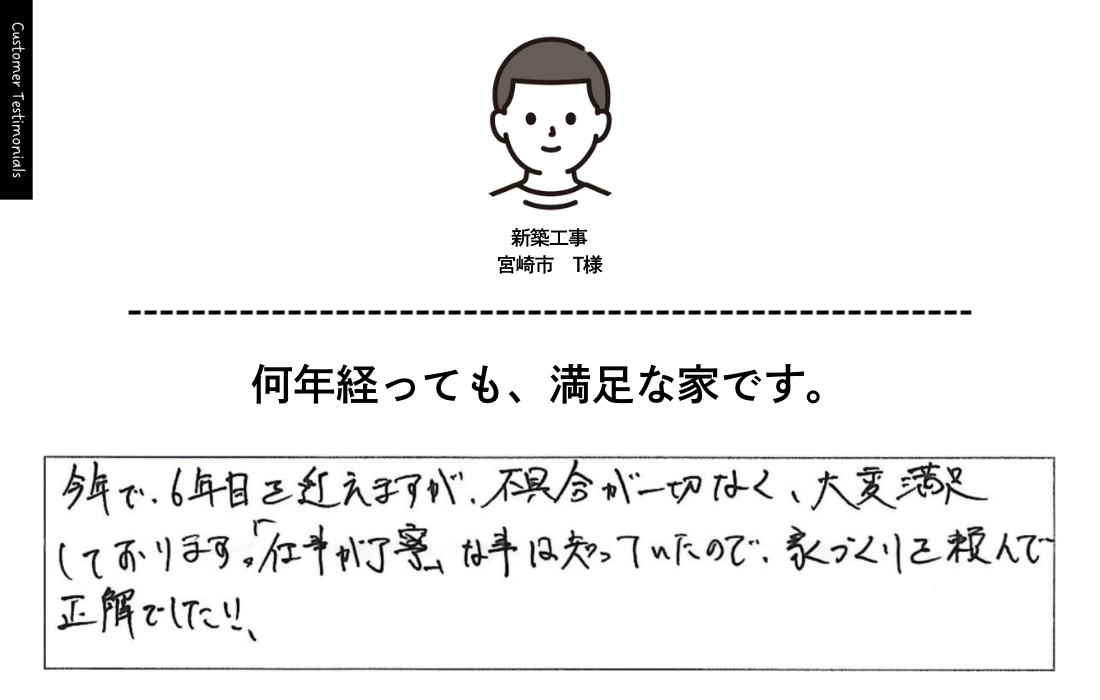 Customer Testimonials
新築工事
宮崎市　T様
何年経っても、満足な家です。
今年で、6年目を迎えますが、不具合が一切なく、大変満足
しております。「仕事が丁寧」な事は知っていたので、家づくりを頼んで
正解でした!!、